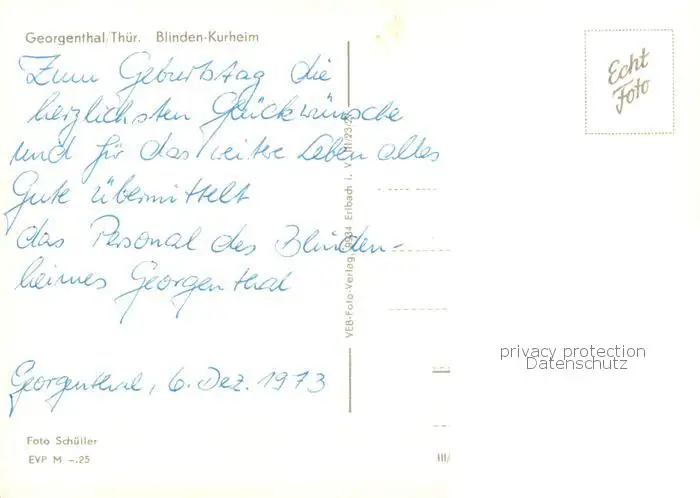 Georgenthal/Thür. Blinden-Kurheim
Zum Geburtstag die
herzlichsten Glückwünsche
und für das weitere Leben alles
Gute übermittelt
das Personal des Blinden-
heimes Georgenthal
Georgenthal, 6. Dez. 1973
Foto Schüller
EVP M –.25
VEB-Foto-Verlag, 9934 Erlbach i. V.
III/
Echt
Foto
privacy protection
Datenschutz